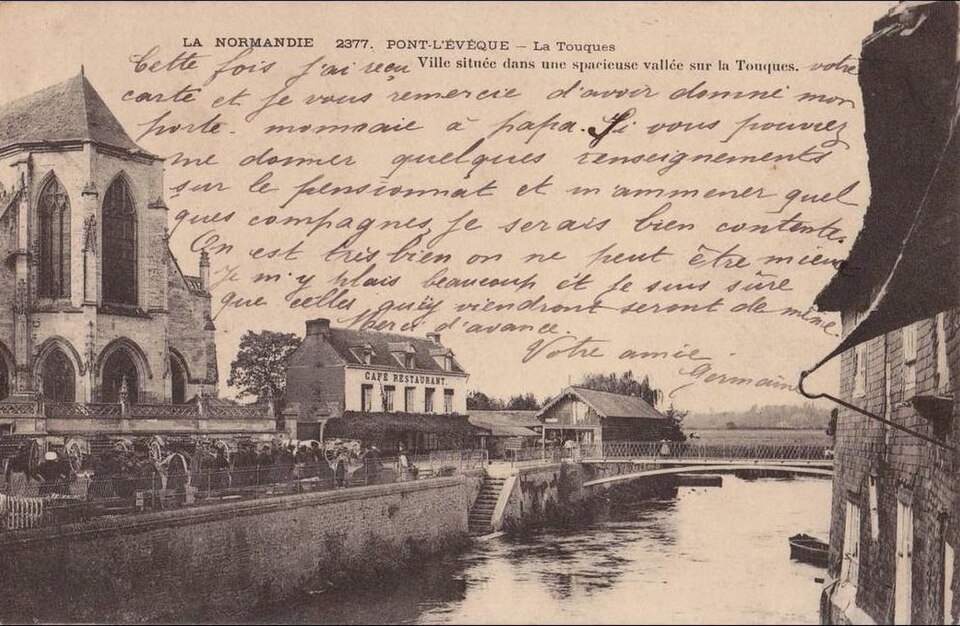 LA NORMANDIE 2377. PONT-L'ÉVÊQUE – La Touques
Ville située dans une spacieuse vallée sur la Touques.
Cette fois j'ai reçu votre
carte et je vous remercie d'avoir donné mon
porte-monnaie à papa. Si vous pouviez
me donner quelques renseignements
sur le pensionnat et m'ammener quel
ques compagnes je serais bien contente.
On est très bien on ne peut être mieux
je m'y plais beaucoup et je suis sûre
que celles qui y viendront seront de même.
Merci d'avance.
Votre amie.
Germaine
CAFÉ RESTAURANT.